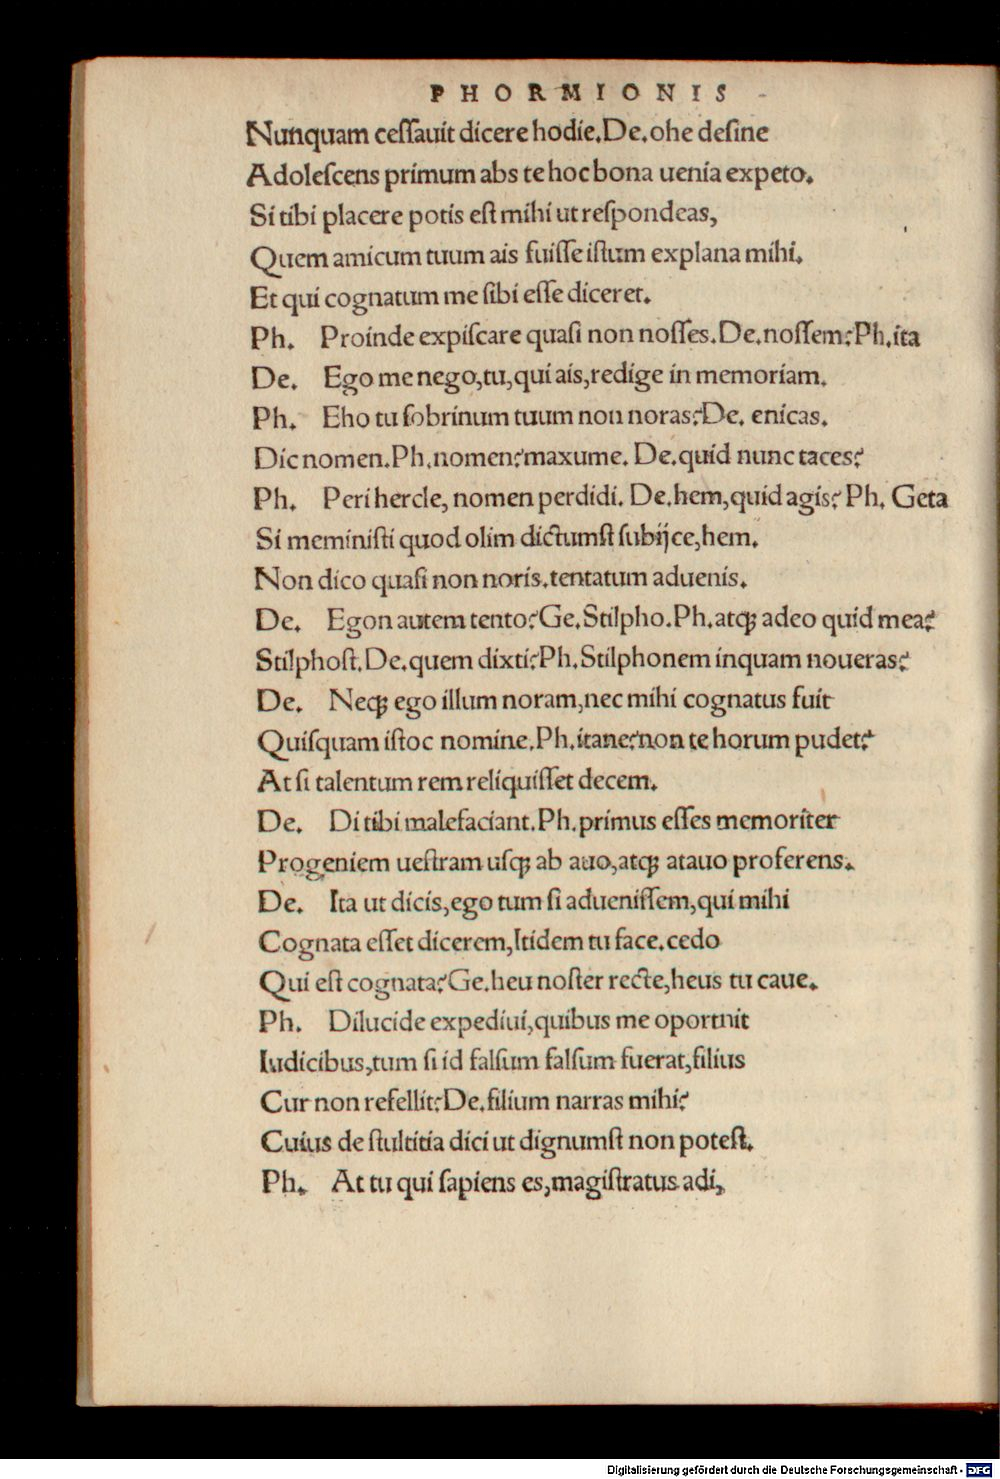 PHORMIONIS
Nunquam ceſſauit dicere hodie.De.ohe deſine
Adoleſcens primum abs te hoc bona uenia expeto.
Si tibi placere potis eſt mihi ut reſpondeas,
Quem amicum tuum ais fuiſſe iſtum explana mihi.
Et qui cognatum me ſibi eſſe diceret.
Ph. Proinde expiſcare quaſi non noſſes.De.noſſem?Ph.ita
De. Ego me nego,tu,qui ais,redige in memoriam.
Ph. Eho tu ſobrinum tuum non noras?De. enicas.
Dic nomen.Ph.nomen?maxume. De.quid nunc taces?
Ph. Peri hercle, nomen perdidi. De.hem,quid agis? Ph. Geta
Si meminiſti quod olim dictumſt ſubijce,hem.
Non dico quaſi non noris.tentatum aduenis.
De. Egon autem tento?Ge.Stilpho.Ph.atqꝫ adeo quid mea?
Stilphoſt.De.quem dixti?Ph.Stilphonem inquam noueras?
De. Neqꝫ ego illum noram,nec mihi cognatus fuit
Quiſquam iſtoc nomine.Ph.itane?non te horum pudet?
At ſi talentum rem reliquiſſet decem.
De. Di tibi malefaciant.Ph.primus eſſes memoriter
Progeniem ueſtram uſqꝫ ab auo,atqꝫ atauo proferens.
De. Ita ut dicis,ego tum ſi adueniſſem,qui mihi
Cognata eſſet dicerem,Itidem tu face.cedo
Qui eſt cognata?Ge.heu noſter recte,heus tu caue.
Ph. Dilucide expediui,quibus me oportuit
Iudicibus,tum ſi id falſum falſum fuerat,filius
Cur non refellit?De.filium narras mihi?
Cuius de ſtultitia dici ut dignumſt non poteſt.
Ph. At tu qui ſapiens es,magiſtratus adi,
Digitalisierung gefördert durch die Deutsche Forschungsgemeinschaft - DFG